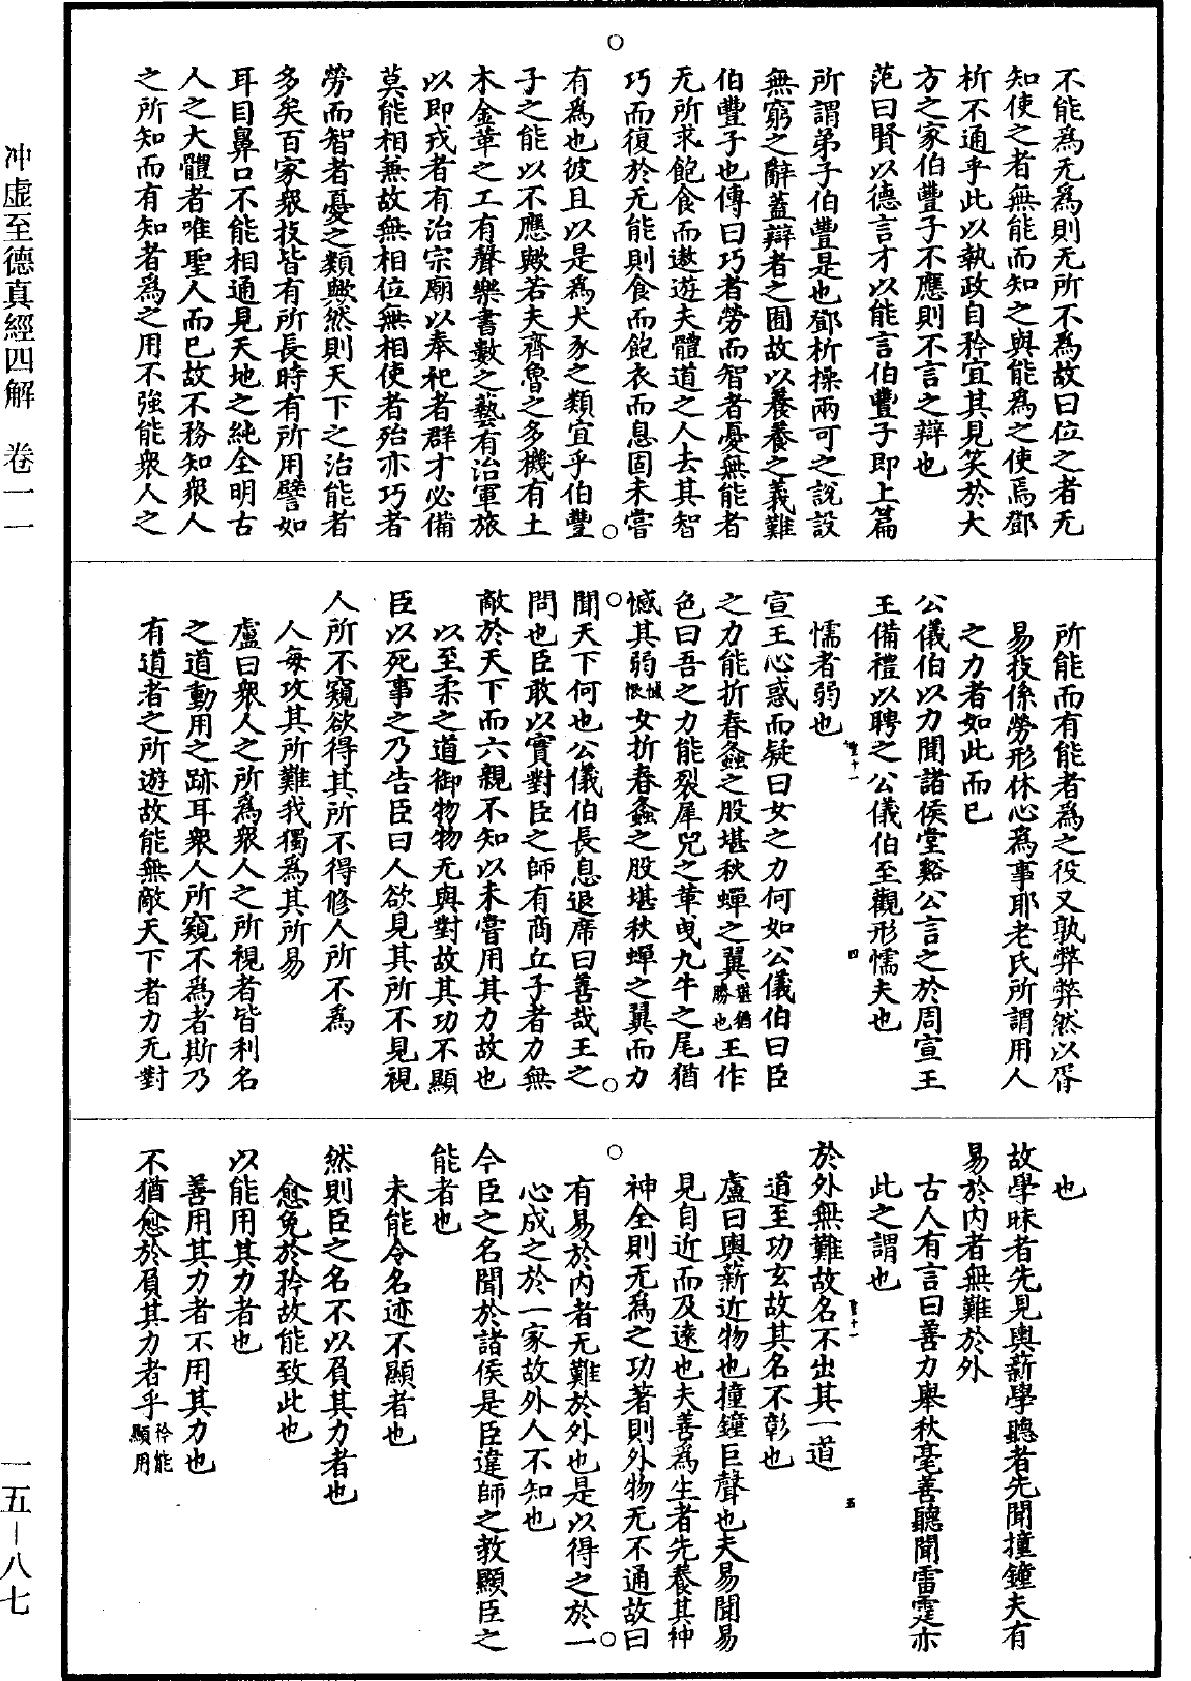 不能爲无爲則无所不爲故曰位之者无
知使之者無能而知之與能爲之使焉鄧
析不通乎此以執政自矜宜其見笑於大
方之家伯豐子不應則不言之辯也
范曰賢以德言才以能言伯豐子即上篇
所謂弟子伯豐是也鄧析操兩可之說設
無窮之辭蓋辯者之囿故以養養之義難
伯豐子也傳曰巧者勞而智者憂無能者
无所求飽食而遨遊夫體道之人去其智
巧而復於无能則食而飽衣而息固未嘗
有爲也彼且以是爲犬豕之類宜乎伯豐
子之能以不應歟若夫齊魯之多機有土
木金革之工有聲樂書數之藝有治軍旅
以即戎者有治宗廟以奉祀者群才必備
莫能相兼故無相位無相使者殆亦巧者
勞而智者憂之類歟然則天下之治能者
多矣百家衆技皆有所長時有所用譬如
耳目鼻口不能相通見天地之純全明古
人之大體者唯聖人而已故不務知衆人
之所知而有知者爲之用不強能衆人之
所能而有能者爲之役又孰弊弊然以胥
易技係勞形怵心爲事耶老氏所謂用人
之力者如此而已
公儀伯以力聞諸侯堂谿公言之於周宣王
王備禮以聘之公儀伯至觀形懦夫也
懦者弱也
宣王心惑而疑曰女之力何如公儀伯曰臣
之力能折春螽之股堪秋蟬之翼堪猶勝也王作
色曰吾之力能裂犀兕之革曳九牛之尾猶
憾其弱憾恨女折春螽之股堪秋蟬之翼而力
聞天下何也公儀伯長息退席曰善哉王之
問也臣敢以實對臣之師有商丘子者力無
敵於天下而六親不知以未嘗用其力故也
以至柔之道御物物无與對故其功不顯
臣以死事之乃告臣曰人欲見其所不見視
人所不窺欲得其所不得修人所不爲
人每攻其所難我獨爲其所易
盧曰衆人之所爲衆人之所視者皆利名
之道動用之跡耳衆人所窺不爲者斯乃
有道者之所遊故能無敵天下者力无對
也
故學眎者先見輿薪學聽者先聞撞鐘夫有
易於內者無難於外
古人有言曰善力舉秋毫善聽聞雷霆亦
此之謂也
於外無難故名不出其一道
道至功玄故其名不彰也
盧曰輿薪近物也撞鐘巨聲也夫易聞易
見自近而及遠也夫善爲生者先養其神
神全則无爲之功著則外物无不通故曰
有易於內者无難於外也是以得之於一
心成之於一家故外人不知也
今臣之名聞於諸侯是臣違師之教顯臣之
能者也
未能令名迹不顯者也
然則臣之名不以負其力者也
愈免於矜故能致此也
以能用其力者也
善用其力者不用其力也
不猶愈於負其力者乎矜能顯用
冲虛至德真經四解 卷一一
一五－八七